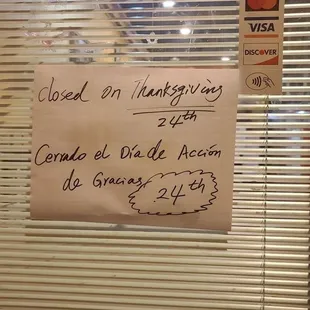 VISA
DISCOVER
Closed on Thanksgiving
24th
Cerrado el Día de Acción
de Gracias 24th